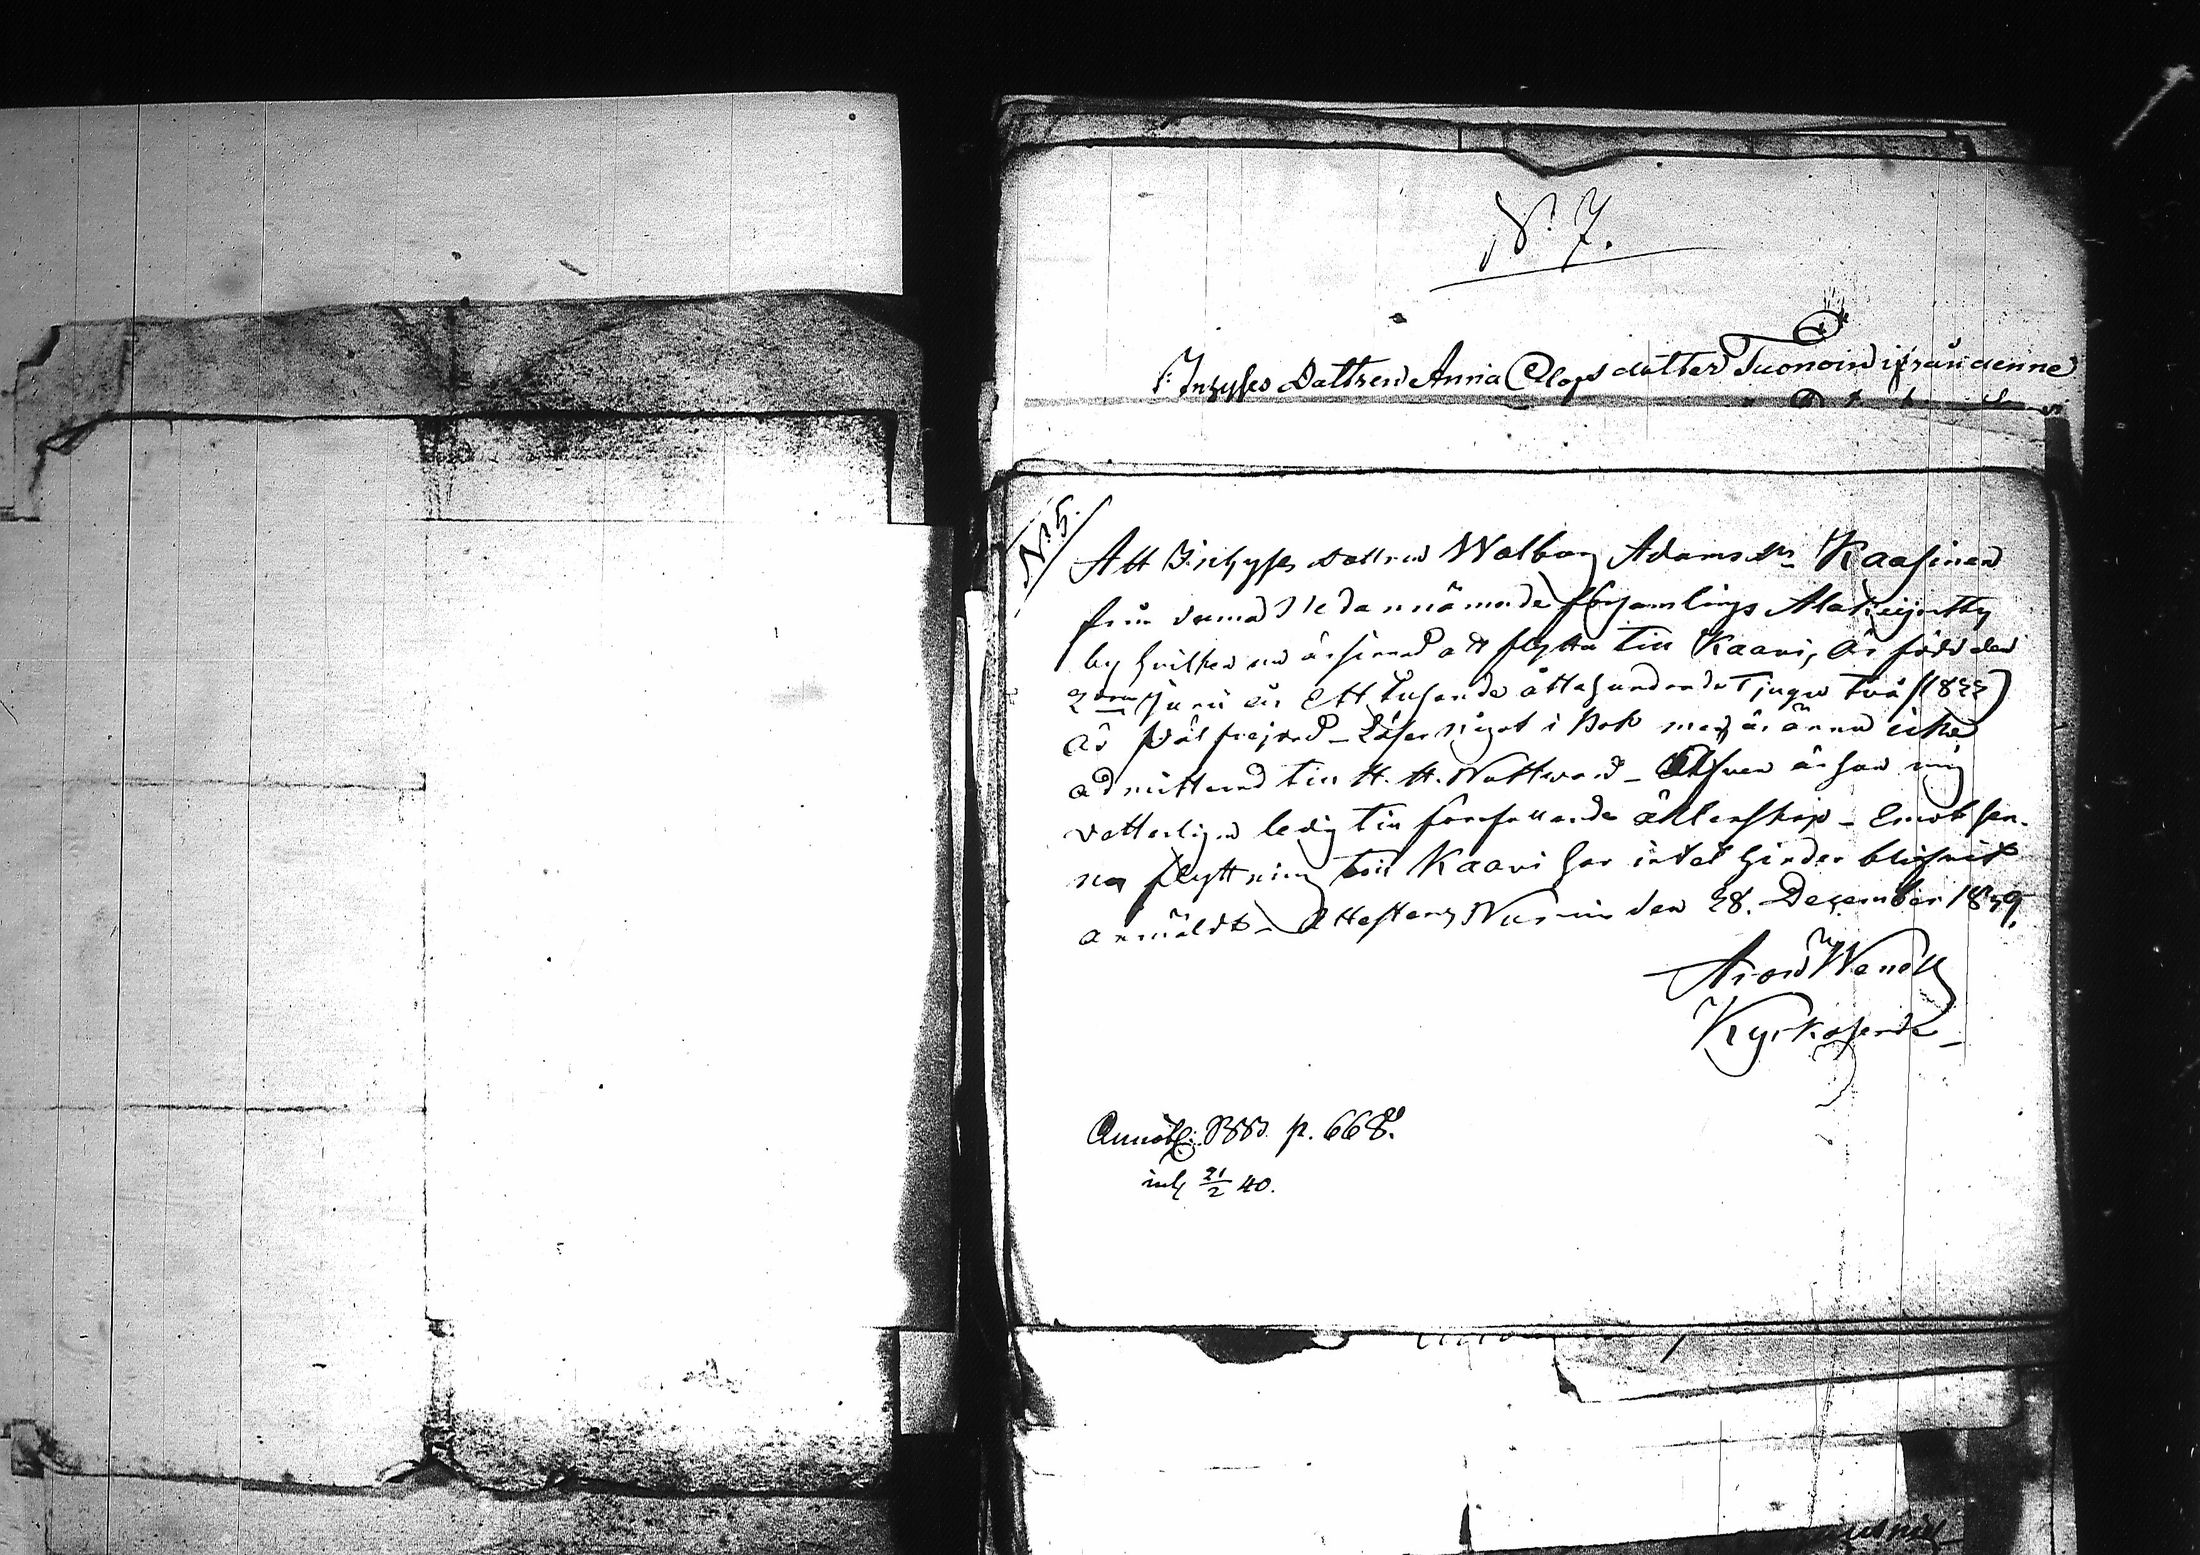 N:o 7.
Inhyses Dottren Anna Olofsdotter Tuonoin ifrån denne
N:o 5.
Att Inhyses Dottren Walborg Adams dr Kaasinen
från denna Nedannämnde församlings Alakeyritty
by hvilken nu är sinnad att flytta till Kaavi, är född den
2dra Juni år Ett tusende åttahundrade Tjugu två (1822)
är Välfrejdad – Läser något i bok men är ännu icke
admitterad till H. H. Nattvard – Älfven är hon mig
vetterligen ledig till förefallande äktenskap – Emot hen-
nes flyttning till Kaavi har intet hinder blifvit
anmäldt – Attesterar Nurmis den 28. December 1839.
Aron Wenell
Kyrkoherde
Annot. p. 668.
inl. 21/2 40.